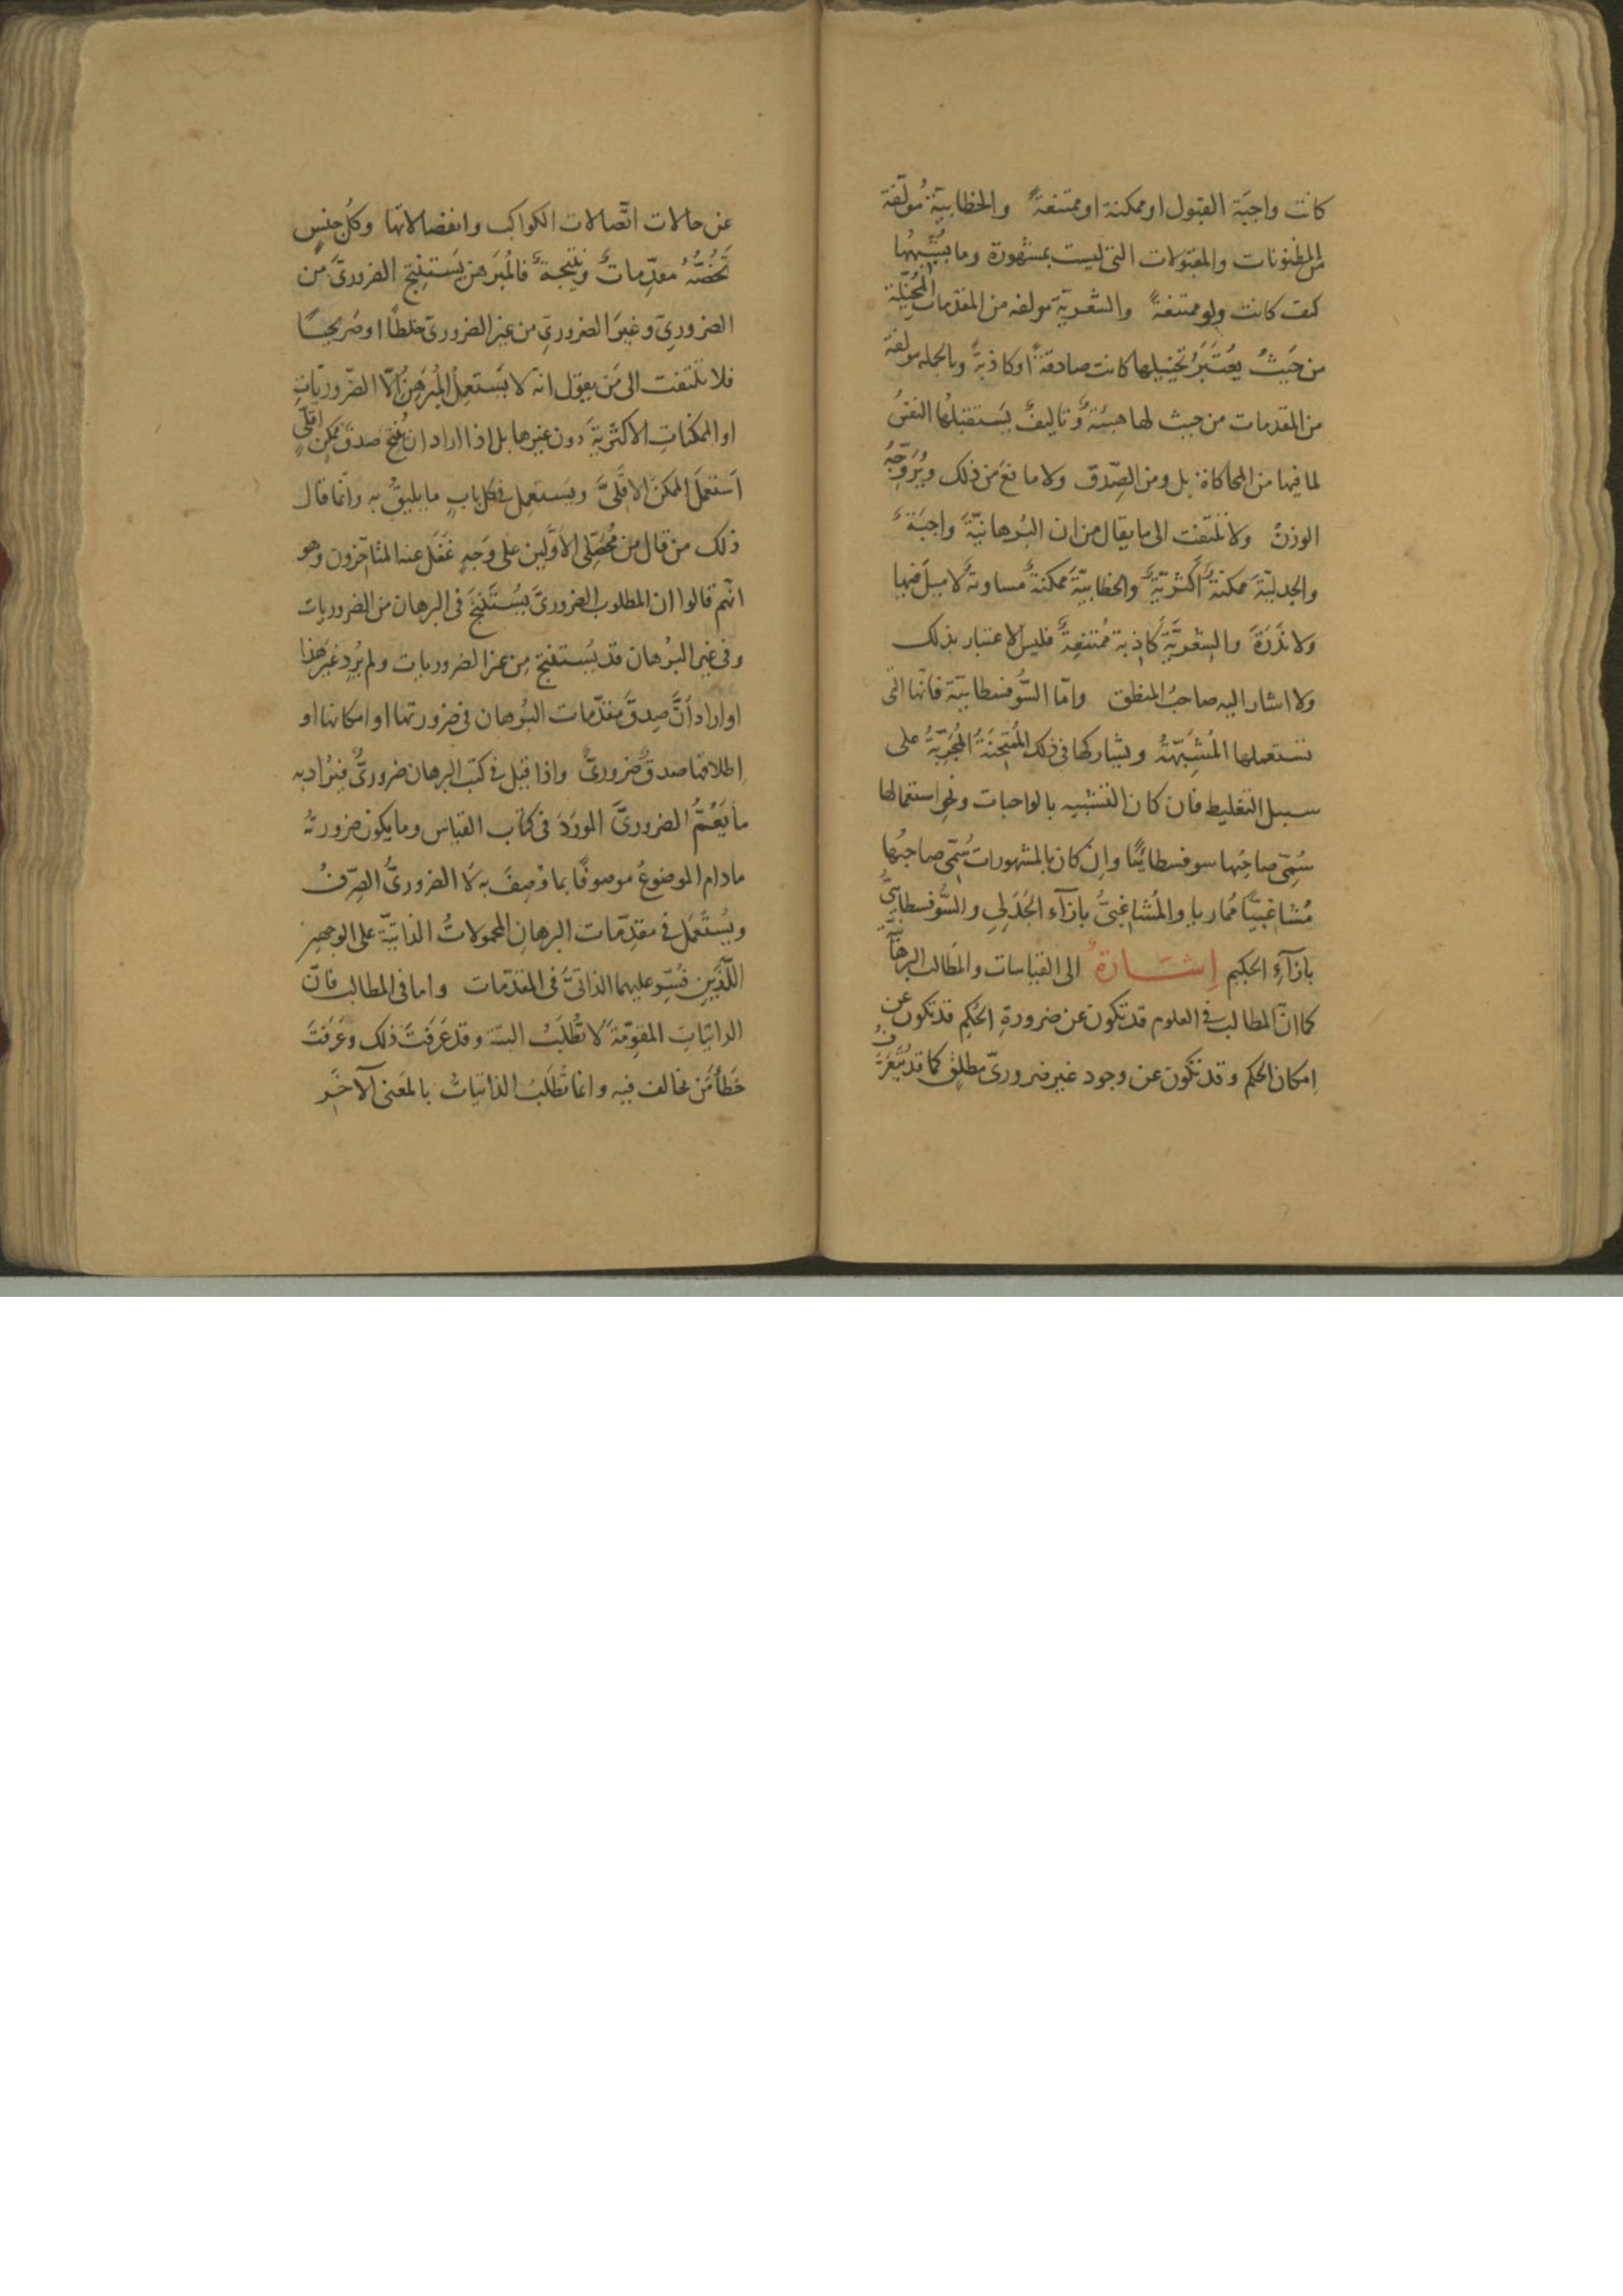 كانت واجبَة القبول او ممكنة او ممتنعةً والخطابيّة مُولّفة
من المظنونات والمقبولات التى ليست بمشهورة وما يُشْبِهُها
كيف كانت ولو ممتنعةً والشعريّة مولفه من المقدمات المُخيّلة
من حَيثُ يُعتَبَرُ تخييلها كانت صادقةً او كاذبةً وبالجمله مولفة
من المقدمات من حيث لها هيئةٌ وتاليفٌ يَستقبلُها النفسُ
لما فيها من المحاكاة بل ومن الصِّدق ولا مانعَ من ذلك ويُرَوِّجُهُ
الوزنُ ولا تلتفت الى ما يقال من ان البُرهانيّةَ واجبَةٌ
والجدليّةَ ممكنةٌ اكثريّةٌ والخطابيّةَ ممكنةٌ مساويةٌ لا ميلَ فيها
ولا نَدَرَةَ والشِعْريَّةَ كاذِبة مُمتَنِعةٌ فليس الاعتبار بذلك
ولا اشار اليه صاحبُ المنطق وامّا السُّوفسطاييّة فانّها التى
تستعملها المُشَبِّهَةُ ويشاركها فى ذلك المُمتَحِنَةُ المُجَرِّبَةُ على
سبيل التغليط فان كان التشبيه بالواجبات ونحو استعمالها
سُمِّى صاحبُها سوفسطائيًّا وان كان بالمشهورات سُمِّى صاحبُها
مُشاغبيًّا مُماريا والمُشاغِبىُّ بازآء الجَدَلِى والسُّوفسطايىُّ
بازآءِ الحكيم إشَارةٌ الى القياسات والمَطالب البرهانيَّة
كما انّ المطالب فى العلوم قد تكون عن ضرورةِ الحُكم قد تكون عن
اِمكان الحكم وقد تكون عن وجود غير ضروريّ مطلقٍ كما قد يُتَعَرَّفُ
عن حالات اتّصالات الكواكب وانفصالاتها وكُل جنسٍ
تَخُصُّهُ مقدِّماتٌ ونتيجةٌ فالمُبَرهن يَستنتِج الضرورىَّ من
الضرورىِّ وغيرَ الضرورىِّ من غير الضرورىّ خلطًا او صَريحًا
فلا تلتفت الى مَن يقول انّه لا يَستعمِلُ المُبَرهِنُ الّا الضّروريّاتِ
او الممكناتِ الاكثريةَ دون غيرها بل اذا اراد ان يُنتِجَ صدقَ ممكنٍ اقلّىٍّ
استعمَلَ الممكنَ الاقلّىَّ ويَستعمِل فى كل بابٍ ما يليقُ به وانّما قال
ذلك من قال من مُحَصِّلى الاوّلين على وَجهٍ غَفَل عنه المتاخّرون وهو
انّهم قالوا ان المطلوب الضرورىَّ يُستَنتَجُ فى البرهان من الضروريات
وفى غير البُرهان قد يُستنتج مِن غير الضروريات ولم يُرِد غيرَ هذا
او اراد أنَّ صِدقَ مقدّمات البُرهان فى ضرورتها او امكانها او
اِطلاقها صدقٌ ضرورىٌّ واذا قيل فى كتب البرهان ضرورىٌّ فيُراد به
ما يَعُمُّ الضرورىَّ المورَدَ فى كتاب القياس وما يكون ضرورتُهُ
مادام الموضوعُ موصوفًا بما وُصِفَ به لا الضرورىُّ الصِّرفُ
ويُستَعمَل فى مقدِّمات البرهانِ المحمولاتُ الذاتيّة على الوجهين
اللَّذَينِ فُسِّر عليهما الذاتىُّ فى المقدّمات واما فى المطالب فانّ
الذاتيات المقوِّمَةَ لا تُطلَبُ البتة وقد عَرَفتَ ذلك وعَرَفتَ
خَطَأ مَن يخالف فيه وانما تُطلَبُ الذاتياتُ بالمعَنى الآخَر